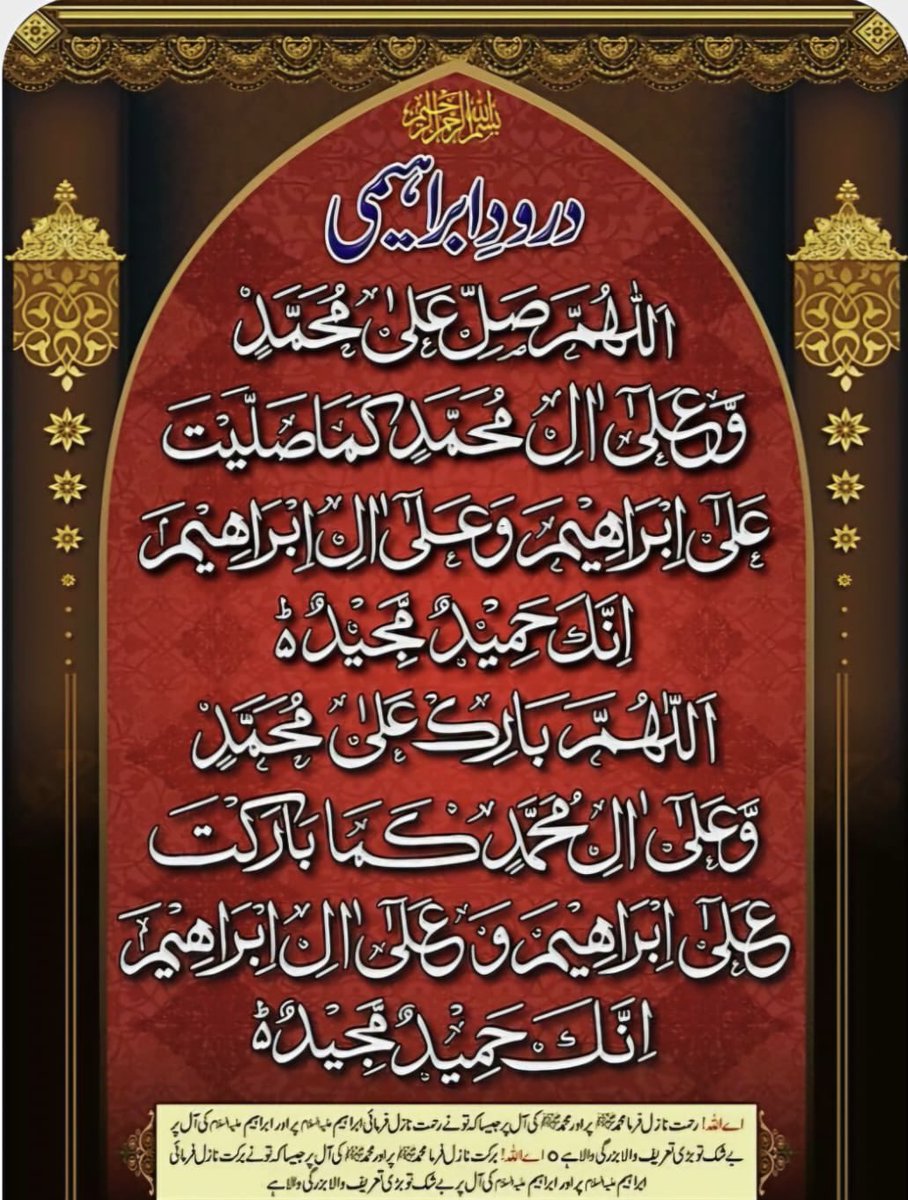 بسم الله الرحمن الرحيم
درودِ ابراہیمی
اَللّٰهُمَّ صَلِّ عَلٰى مُحَمَّدٍ
وَّعَلٰٓى اٰلِ مُحَمَّدٍ كَمَا صَلَّيْتَ
عَلٰٓى اِبْرَاهِيْمَ وَعَلٰٓى اٰلِ اِبْرَاهِيْمَ
اِنَّكَ حَمِيْدٌ مَّجِيْدٌ ؕ
اَللّٰهُمَّ بَارِكْ عَلٰى مُحَمَّدٍ
وَّعَلٰٓى اٰلِ مُحَمَّدٍ كَمَا بَارَكْتَ
عَلٰٓى اِبْرَاهِيْمَ وَ عَلٰٓى اٰلِ اِبْرَاهِيْمَ
اِنَّكَ حَمِيْدٌ مَّجِيْدٌ ؕ
اے اللہ! رحمت نازل فرما محمد ﷺ پر اور محمد ﷺ کی آل پر جیسا کہ تو نے رحمت نازل فرمائی ابراہیم علیہ السلام پر اور ابراہیم علیہ السلام کی آل پر
بے شک تو بڑی تعریف والا بزرگی والا ہے ٥ اے اللہ! برکت نازل فرما محمد ﷺ پر اور محمد ﷺ کی آل پر جیسا کہ تو نے برکت نازل فرمائی
ابراہیم علیہ السلام پر اور ابراہیم علیہ السلام کی آل پر بے شک تو بڑی تعریف والا بزرگی والا ہے